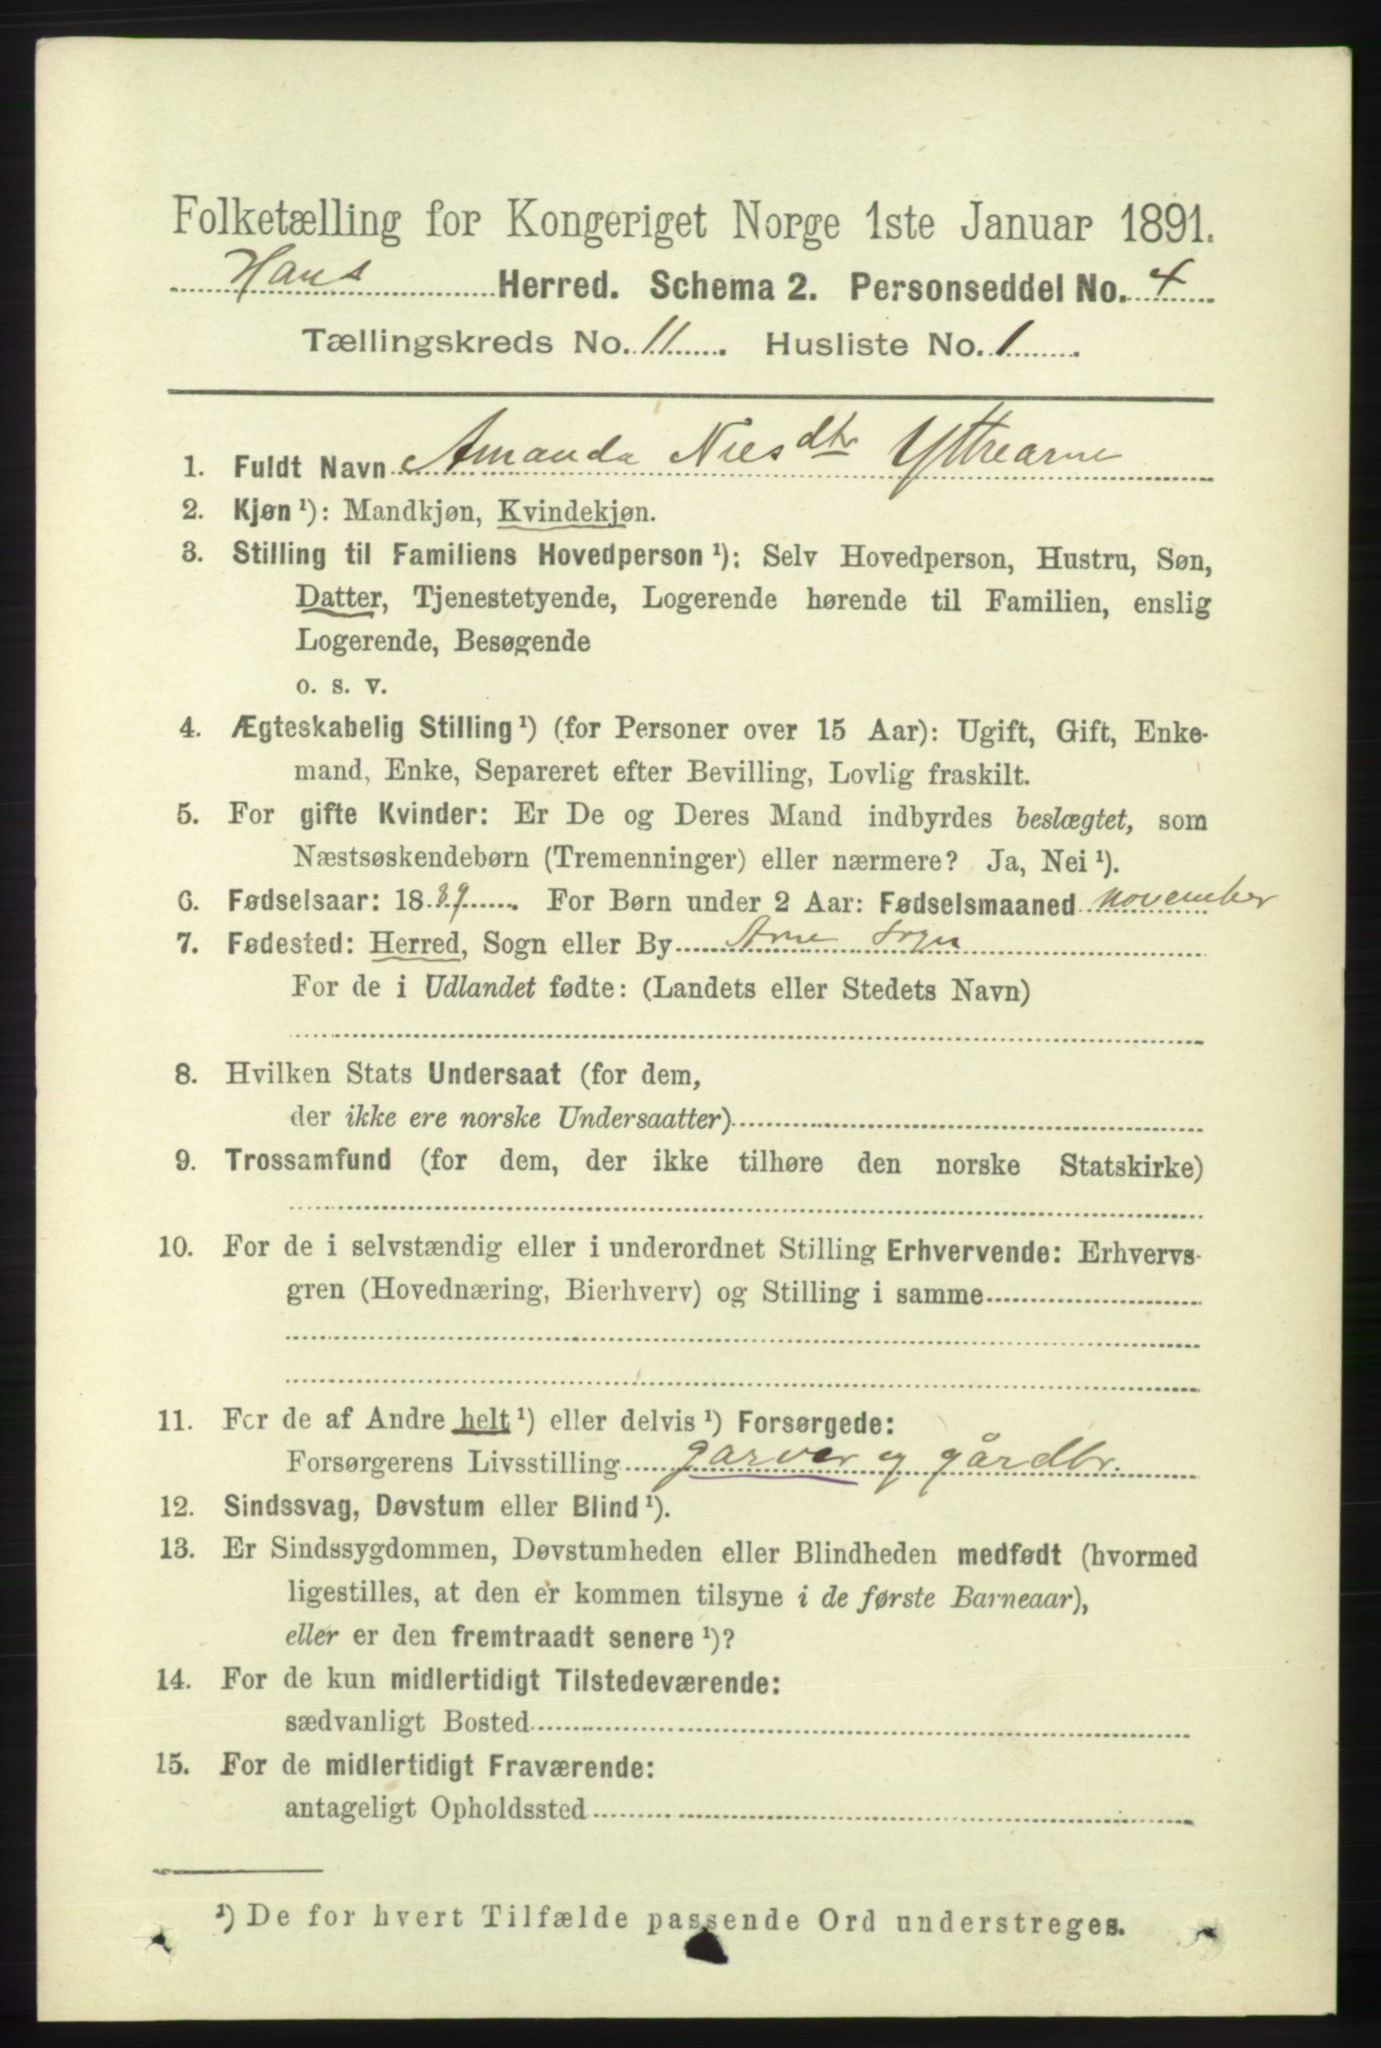 Folketælling for Kongeriget Norge 1ste Januar 1891.
Haus Herred. Schema 2. Personseddel No. 4
Tællingskreds No. 11. Husliste No. 1.
1. Fuldt Navn Amanda Nilsdtr Yttrearne
2. Kjøn ¹): Mandkjøn, Kvindekjøn.
3. Stilling til Familiens Hovedperson ¹): Selv Hovedperson, Hustru, Søn,
Datter, Tjenestetyende, Logerende hørende til Familien, enslig
Logerende, Besøgende
o. s. v.
4. Ægteskabelig Stilling ¹) (for Personer over 15 Aar): Ugift, Gift, Enke-
mand, Enke, Separeret efter Bevilling, Lovlig fraskilt.
5. For gifte Kvinder: Er De og Deres Mand indbyrdes beslægtet, som
Næstsøskendebørn (Tremenninger) eller nærmere? Ja, Nei ¹).
6. Fødselsaar: 1889. For Børn under 2 Aar: Fødselsmaaned november
7. Fødested: Herred, Sogn eller By Arne sogn
For de i Udlandet fødte: (Landets eller Stedets Navn)
8. Hvilken Stats Undersaat (for dem,
der ikke ere norske Undersaatter)
9. Trossamfund (for dem, der ikke tilhøre den norske Statskirke)
10. For de i selvstændig eller i underordnet Stilling Erhvervende: Erhvervs-
gren (Hovednæring, Bierhverv) og Stilling i samme
11. For de af Andre helt ¹) eller delvis ¹) Forsørgede:
Forsørgerens Livsstilling garver og gårdbr.
12. Sindssvag, Døvstum eller Blind ¹).
13. Er Sindssygdommen, Døvstumheden eller Blindheden medfødt (hvormed
ligestilles, at den er kommen tilsyne i de første Barneaar),
eller er den fremtraadt senere ¹)?
14. For de kun midlertidigt Tilstedeværende:
sædvanligt Bosted
15. For de midlertidigt Fraværende:
antageligt Opholdssted
¹) De for hvert Tilfælde passende Ord understreges.